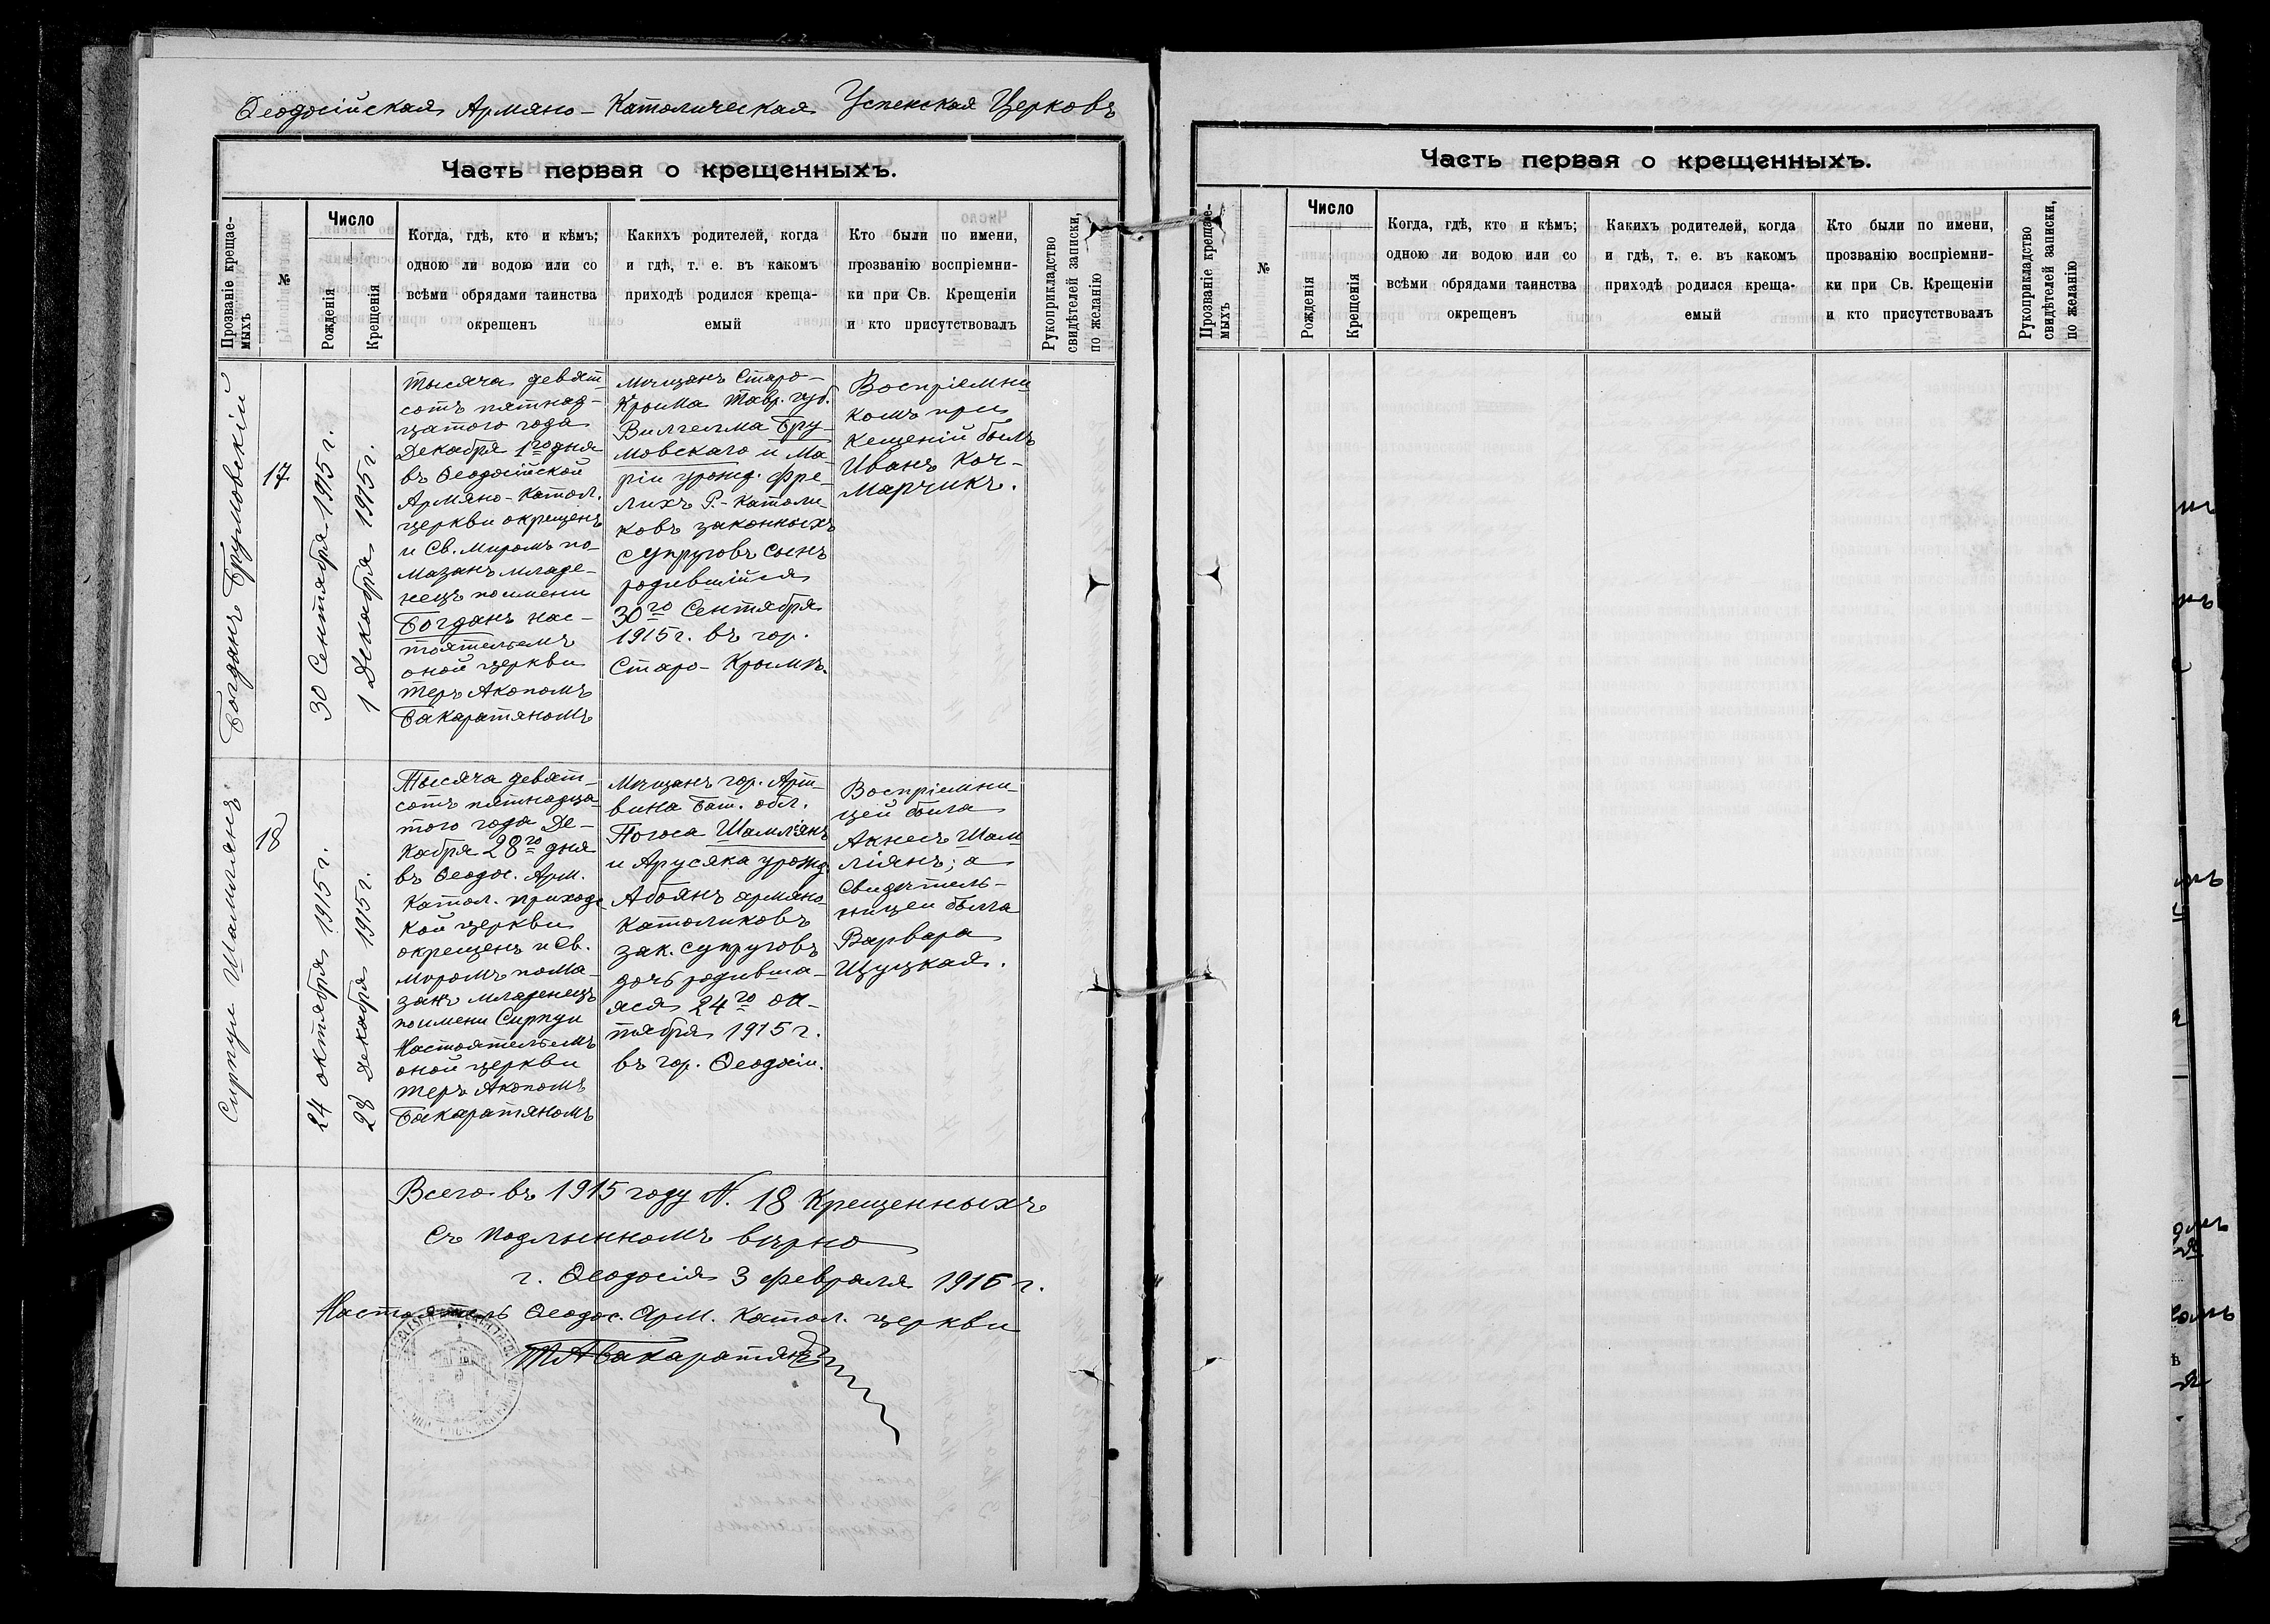 Ѳеодосійская Армяно-Католическая Успенская Церковь
Часть первая о крещенныхъ.
Прозваніе крещае-
мыхъ
№
Число
Рожденія
Крещенія
Когда, гдѣ, кто и кѣмъ;
одною ли водою или со
всѣми обрядами таинства
окрещенъ
Какихъ родителей, когда
и гдѣ, т. е. въ какомъ
приходѣ родился креща-
емый
Кто были по имени,
прозванію воспріемни-
ки при Св. Крещеніи
и кто присутствовалъ
Рукоприкладство
свидѣтелей записки,
по желанію
Богданъ Брумовскій
17
30 Сентября 1915 г.
1 Декабря 1915 г.
Тысяча девят-
сотъ пятнад-
цатого года
Декабря 1го дня
въ Ѳеодосійской
Армяно-Катол.
церкви окрещенъ
и Св. Миромъ по-
мазанъ младе-
нецъ по имени
Богданъ нас-
тоятелемъ
оной церкви
теръ Акопомъ
Бакаратяномъ
мѣщанъ Старо-
Крыма Тавр. губ.
Вилгелма Бру-
мовскаго и Ма-
ріи урожд. Фре-
лихъ Р.-Католи-
ковъ законныхъ
супруговъ сынъ
родившійся
30го Сентября
1915 г. въ гор.
Старо-Крымъ.
Воспріемни-
комъ при
кещеніи былъ
Иванъ Коч-
марчикъ.
Сирпуи Шамлiянъ
18
24 октября 1915 г.
28 декабря 1915 г.
Тысяча девят-
сотъ пятнадца-
того года Де-
кабря 28го дня
въ Ѳеодос. Арм.
Катол. приходс
кой церкви
окрещенъ и Св.
мvромъ пома-
занъ младенецъ
по имени Сирпуи
Настоятелемъ
оной церкви
теръ Акопомъ
Бакаратяномъ
Мѣщанъ гор. Арт-
вина Бат. обл.
Погоса Шамліянъ
и Арусяка урожд.
Абоянъ армяно-
католиковъ
зак. супруговъ
дочь родивша-
яся 24го ок-
тября 1915 г.
въ гор. Ѳеодосіи.
Воспріемни-
цей была
Акнесъ Шам
ліянъ; а
Свидѣтель-
ницей была
Варвара
Щуцкая.
Всего въ 1915 году N. 18 Крещенныхъ
Съ подлиннымъ вѣрно
г. Ѳеодосія 3 февраля 1916 г.
Настоятель Ѳеодос. Арм. Катол. церкви
Т А Бакаратянъ
Часть первая о крещенныхъ.
Прозваніе крещае-
мыхъ
№
Число
Рожденія
Крещенія
Когда, гдѣ, кто и кѣмъ;
одною ли водою или со
всѣми обрядами таинства
окрещенъ
Какихъ родителей, когда
и гдѣ, т. е. въ какомъ
приходѣ родился креща-
емый
Кто были по имени,
прозванію воспріемни-
ки при Св. Крещеніи
и кто присутствовалъ
Рукоприкладство
свидѣтелей записки,
по желанію